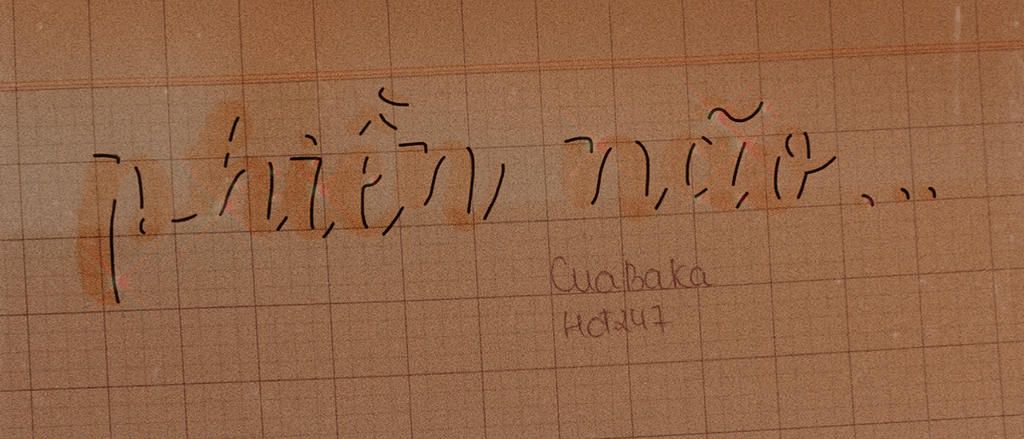 phiền não...
CuaBaka
Hot247